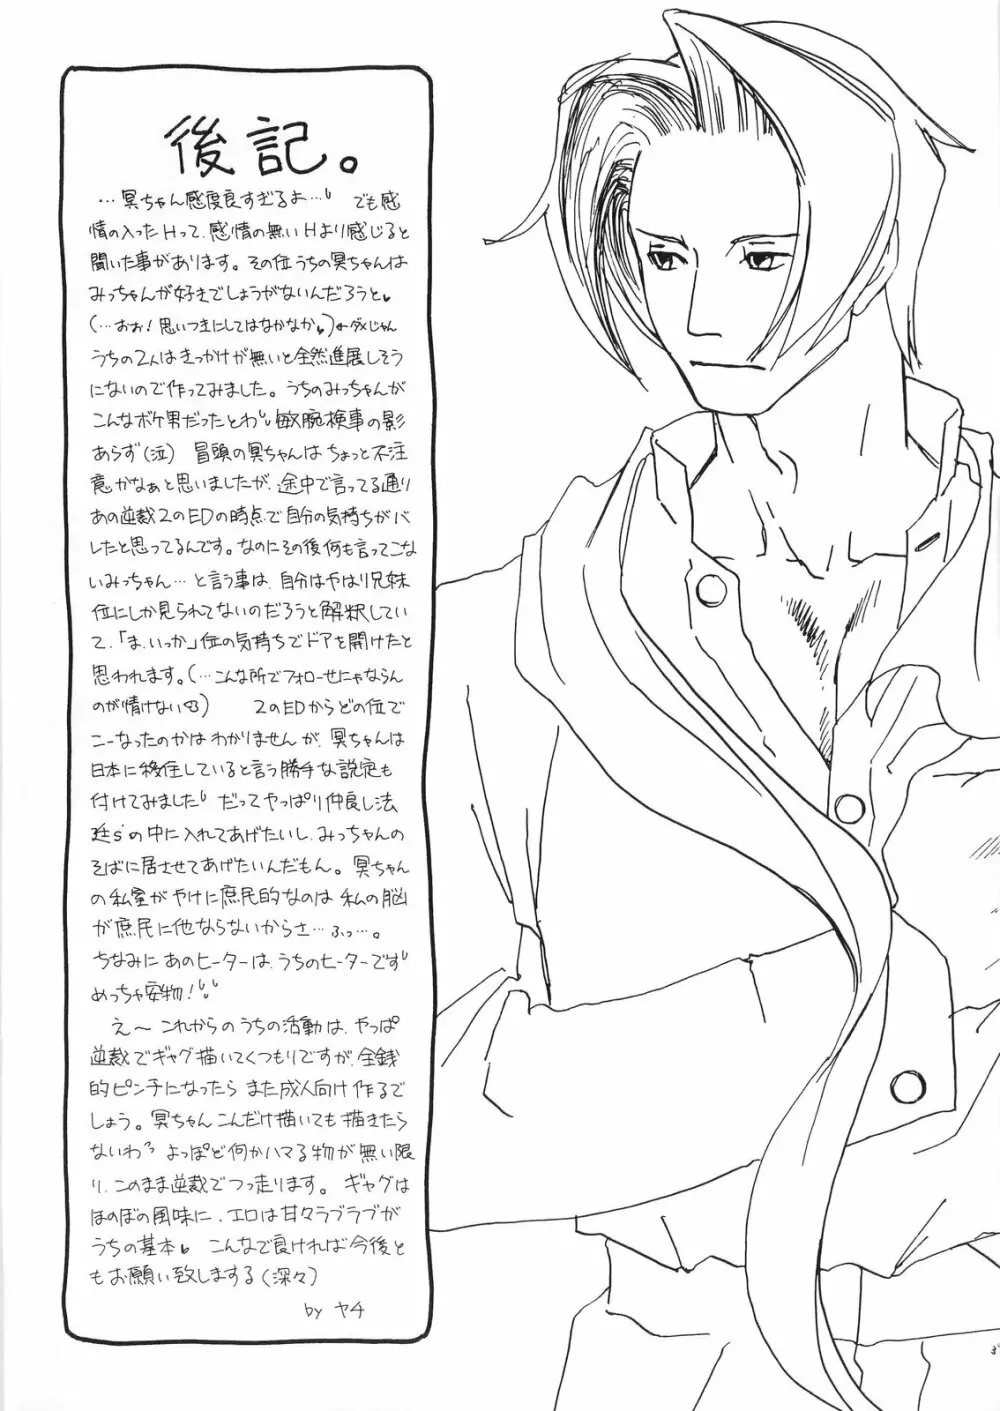 後記。
…冥ちゃん感度良すぎるよ… でも感
情の入ったHって、感情の無いHより感じると
聞いた事があります。その位うちの冥ちゃんは
みっちゃんが好きでしょうがないんだろうと♥
(…おぉ!思いつきにしてはなかなか♥)←ダメじゃん
うちの2人はきっかけが無いと全然進展しそう
にないので作ってみました。うちのみっちゃんが
こんなボケ男だったとわ 敏腕検事の影
あらず(泣) 冒頭の冥ちゃんはちょっと不注
意かなぁと思いましたが、途中で言ってる通り
あの逆裁2のEDの時点で自分の気持ちがバ
レたと思ってるんです。なのにその後何も言ってこな
いみっちゃん…と言う事は、自分はやはり兄妹
位にしか見られてないのだろうと解釈してい
て、「ま、いっか」位の気持ちでドアを開けたと
思われます。(…こんな所でフォローせにゃならん
のが情けない) 2のEDからどの位で
こーなったのかはわかりませんが、冥ちゃんは
日本に移住していると言う勝手な設定も
付けてみました だってやっぱり仲良し法
廷s'の中に入れてあげたいし、みっちゃんの
そばに居させてあげたいんだもん。冥ちゃん
の私室がやけに庶民的なのは私の脳
が庶民に他ならないからさ…ふっ…。
ちなみにあのヒーターは、うちのヒーターです
めっちゃ安物!
え〜これからのうちの活動は、やっぱ
逆裁でギャグ描いてくつもりですが、金銭
的ピンチになったらまた成人向け作るで
しょう。冥ちゃんこんだけ描いても描きたら
ないわ よっぽど何かハマる物が無い限
り、このまま逆裁でつっ走ります。ギャグは
ほのぼの風味に、エロは甘々ラブラブが
うちの基本♥ こんなで良ければ今後と
もお願い致しまする(深々)
by ヤチ